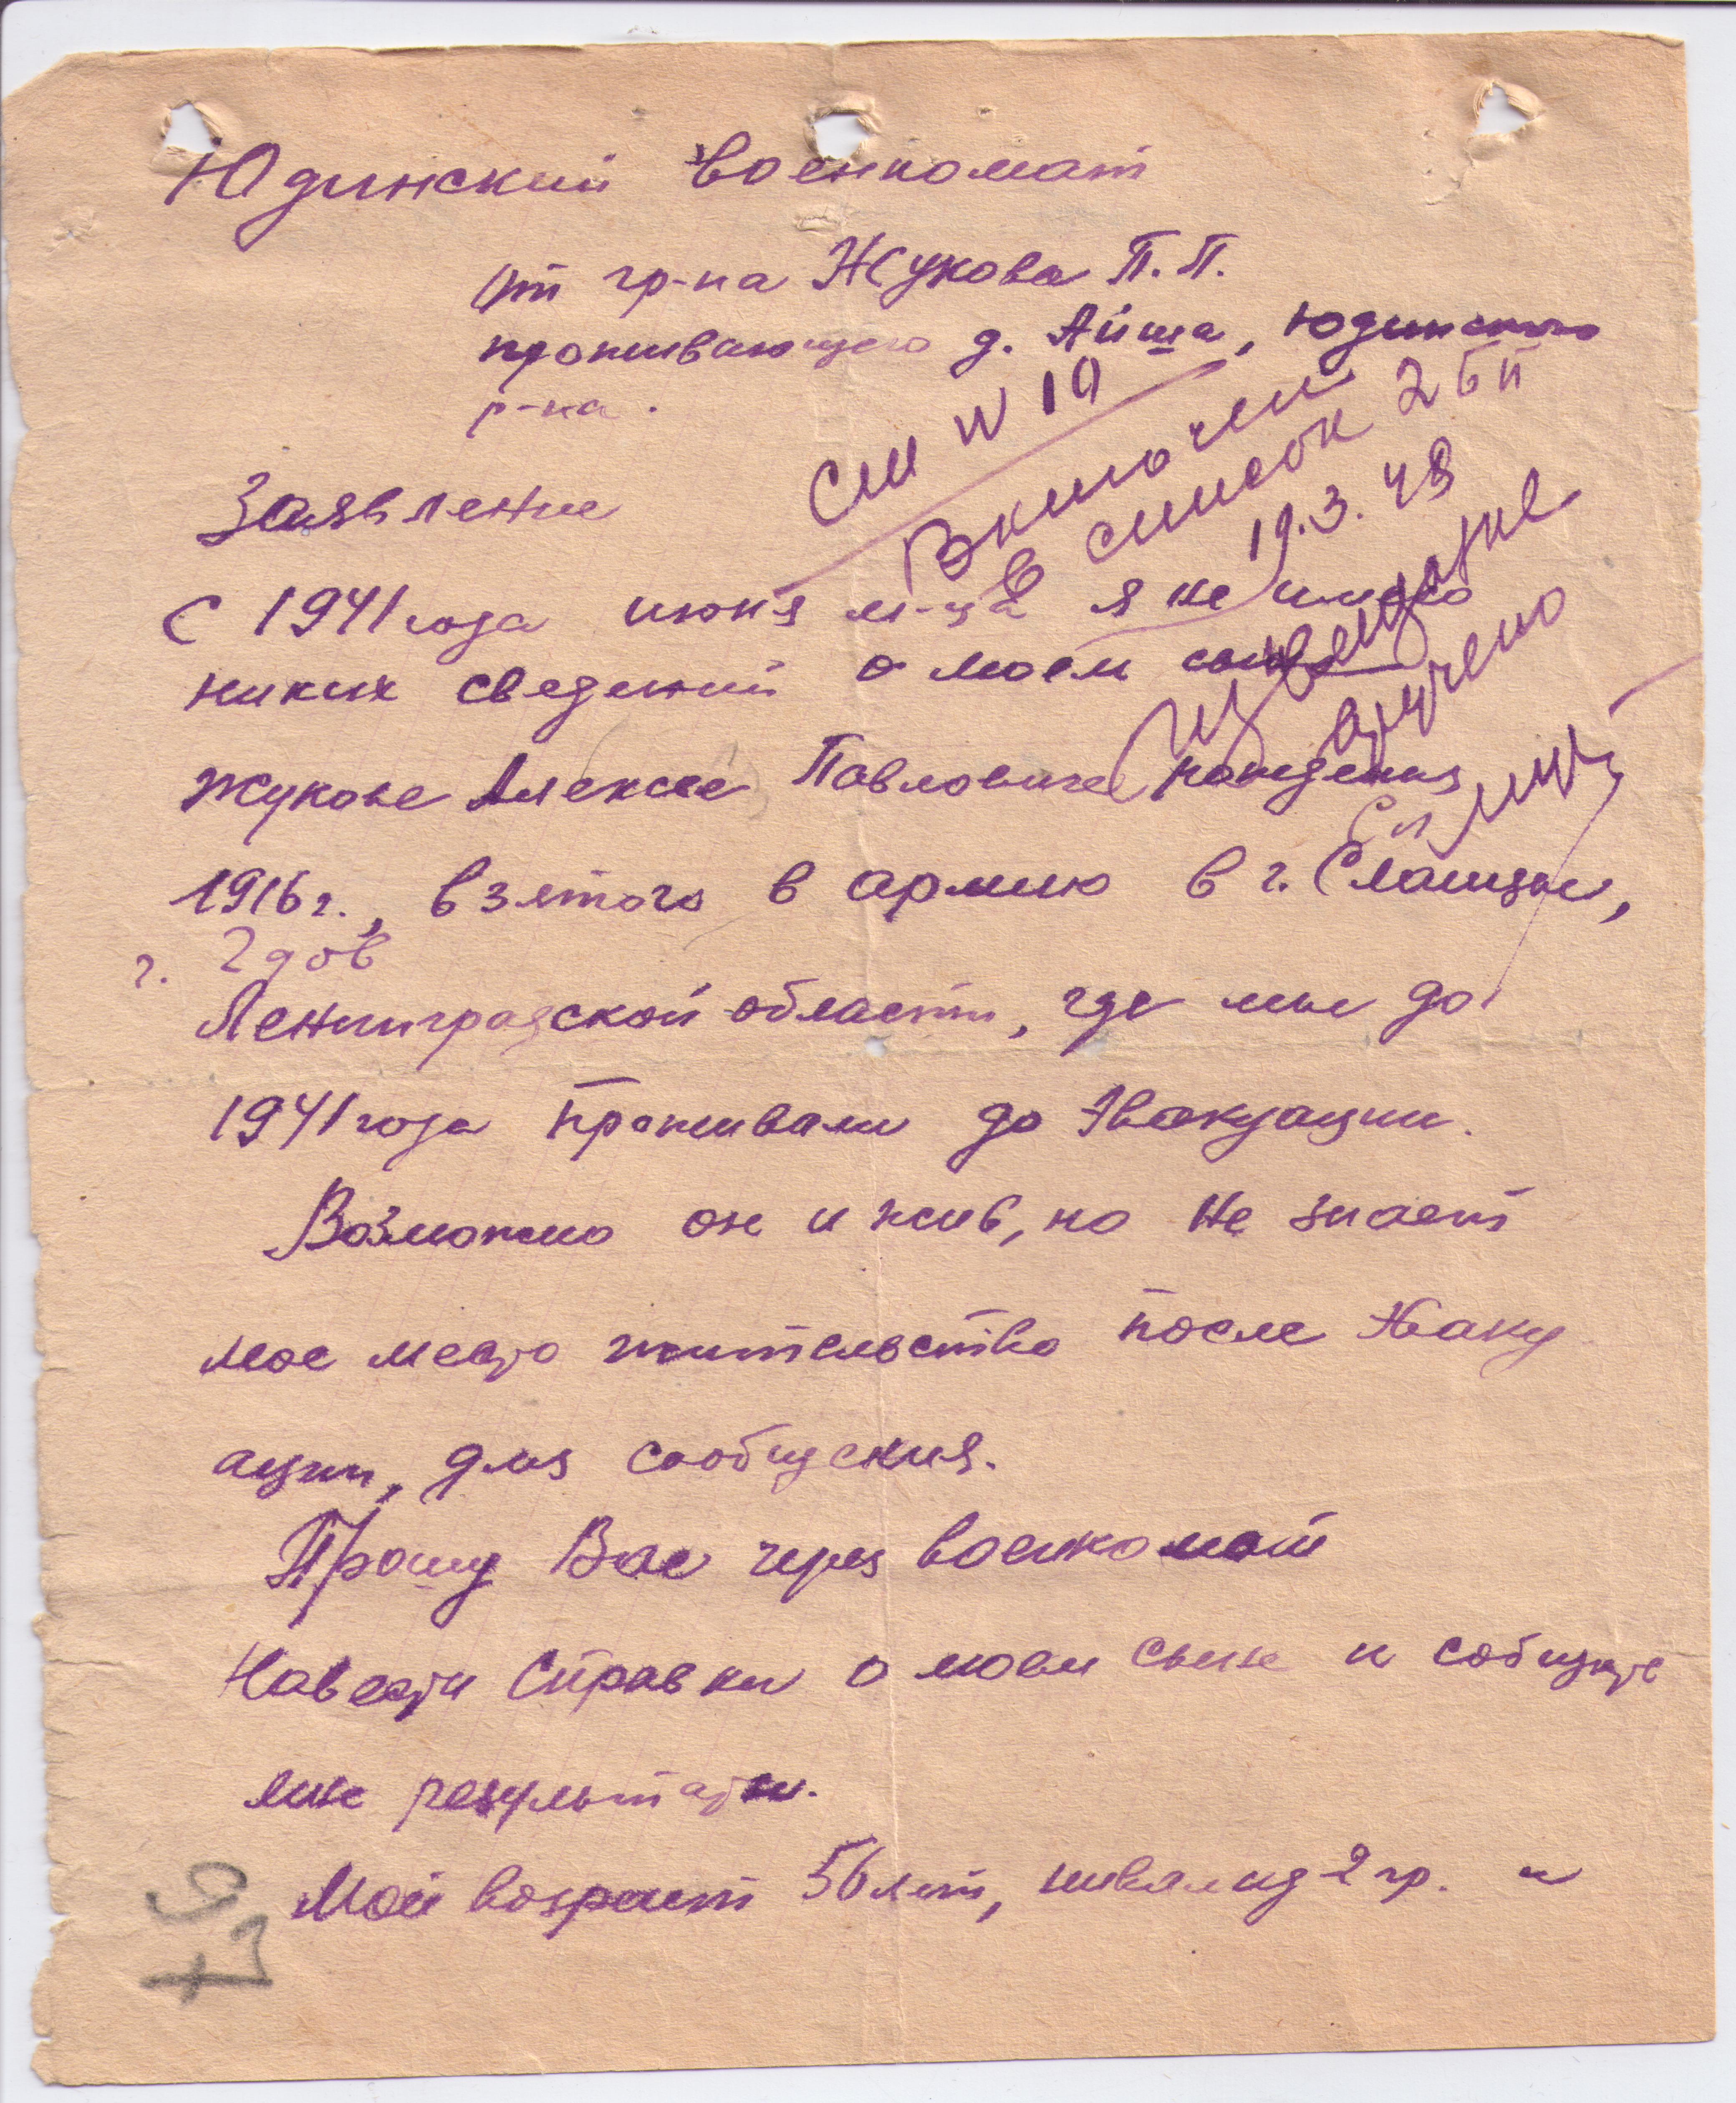 Юдинский военкомат
От гр-на Жукова П.П.
проживающего д. Айша, Юдинского
р-на.
См N 19
Включен
в список 2 БП
19.3.48
Извещение
вручено
Заявление
С 1941 года июня м-ца я не имею
никих сведений о моем сыне
Жукове Алексее Павловиче рождения
1916 г., взятого в армию в г. Сланцы,
г. Гдов
Ленинградской области, где мы до
1941 года проживали до Эвакуации.
Возможно он и жив, но не знает
мое место жительство после Эваку
ации, для сообщения.
Прошу Вас через военкомат
Навести справки о моем сыне и собщите
мне результаты.
Мой возраст 56 лет, инвалид 2 гр. и